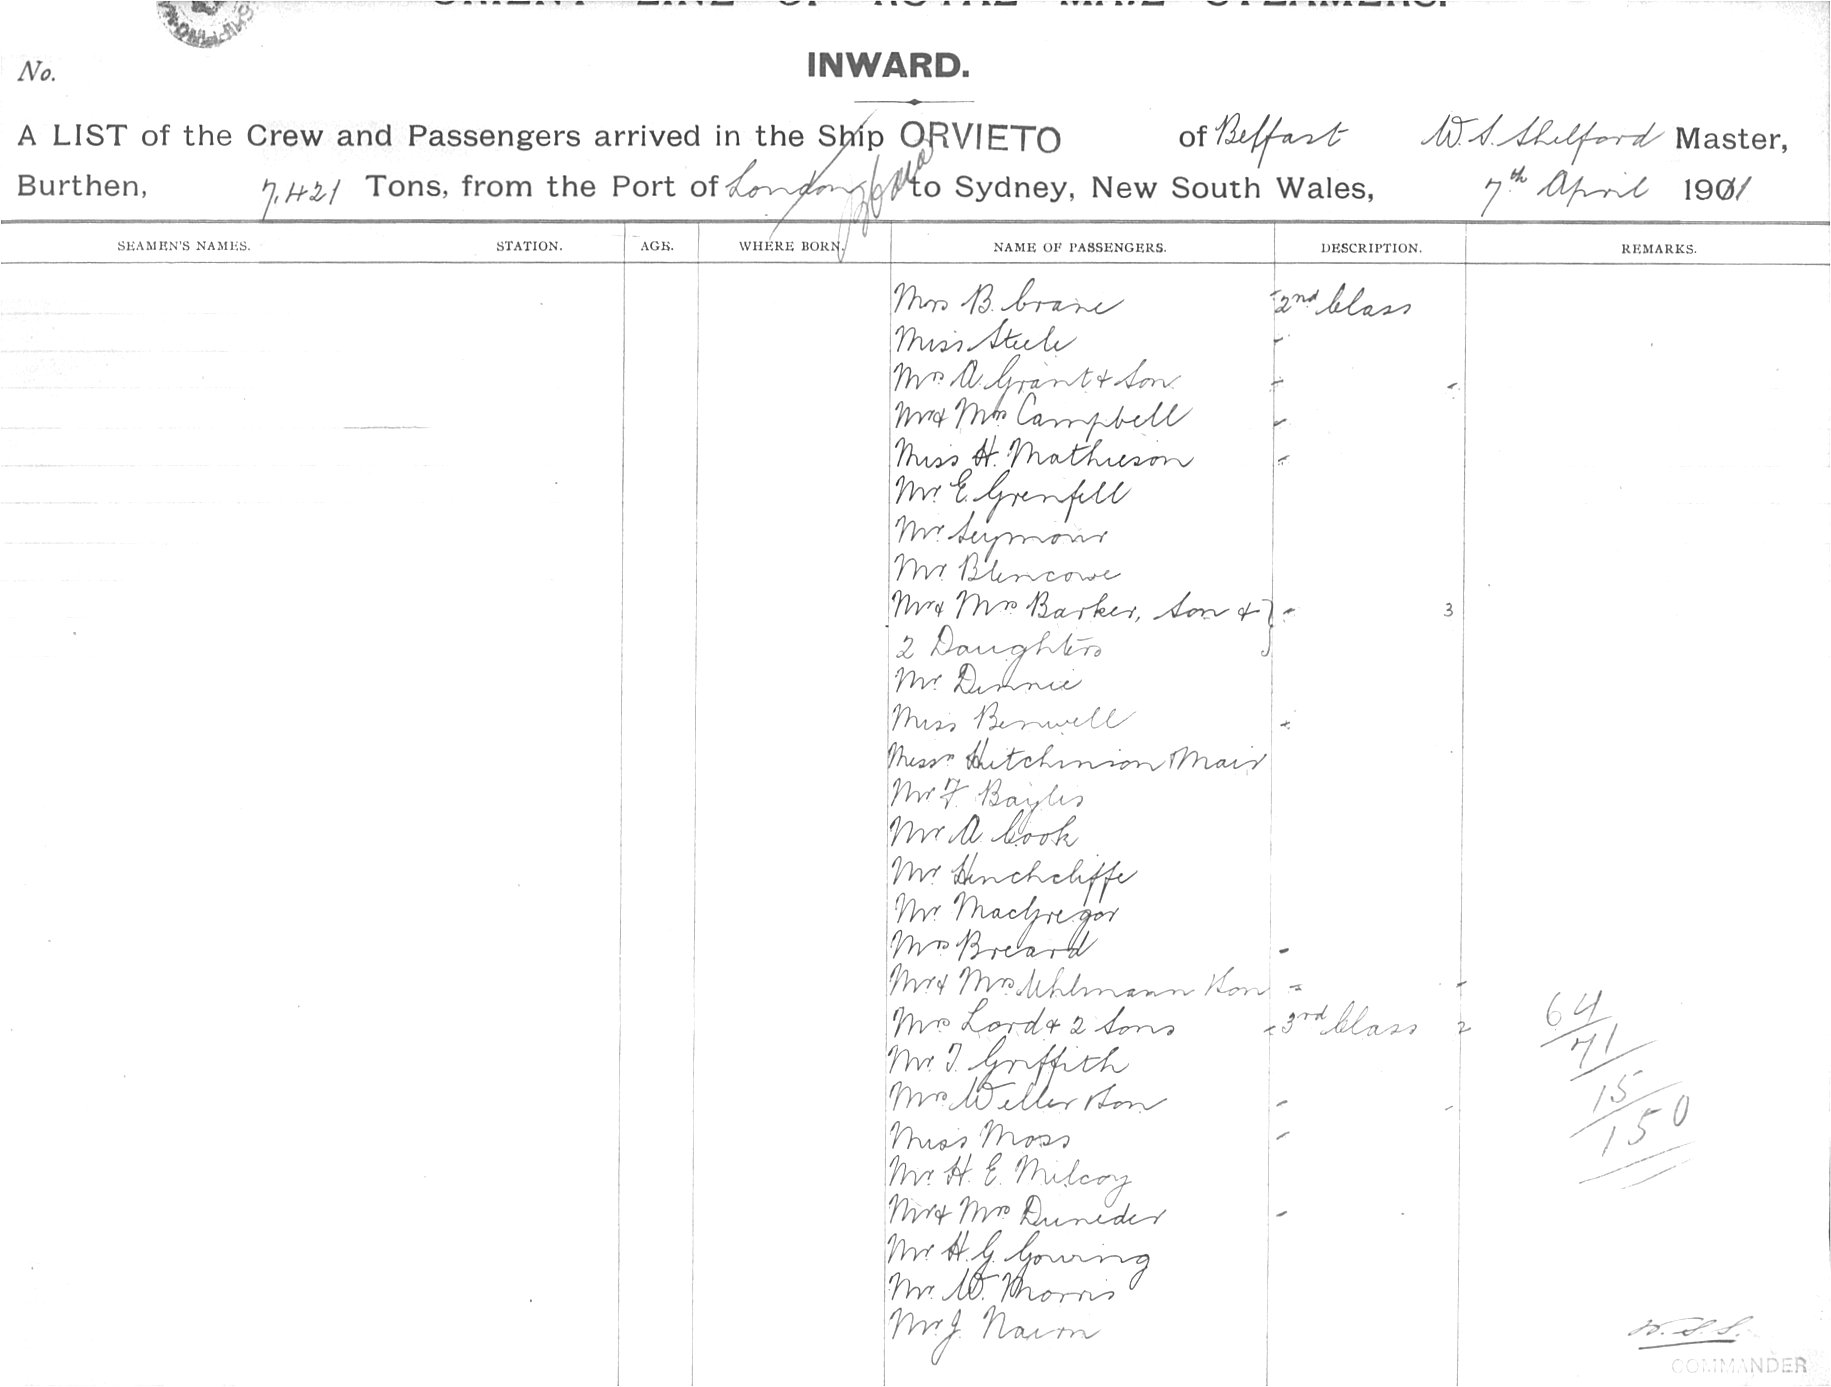 ORIENT LINE OF ROYAL MAIL STEAMERS.
INWARD.
No.
A LIST of the Crew and Passengers arrived in the Ship ORVIETO of Belfast W. S. Shelford Master,
Burthen, 7,421 Tons, from the Port of London to Sydney, New South Wales, 7th April 1901
SEAMEN'S NAMES. STATION. AGE. WHERE BORN. NAME OF PASSENGERS. DESCRIPTION. REMARKS.
Mrs B. Crane 2nd Class
Miss Steele "
Mrs A. Grant & Son "
Mr & Mrs Campbell "
Miss H. Mathieson "
Mr E. Grenfell
Mr Seymour
Mr Blencowe
Mr & Mrs Barker, Son & } " 3
2 Daughters
Mr Dinnie
Miss Benwell "
Messrs Hutchinson & Mair
Mr F. Bayles
Mr A. Cook
Mr Hinchcliffe
Mr MacGregor
Mrs Breard "
Mr & Mrs Uhlmann & Son "
Mrs Lord & 2 Sons 3rd Class 2
Mr T. Griffith
Mrs Weller & Son "
Miss Moss "
Mr H. E. Milcoy
Mr & Mrs Duneder "
Mr H. G. Gowing
Mr W. Morris
Mr J. Nairn
64
71
15
150
W.S.S.
COMMANDER